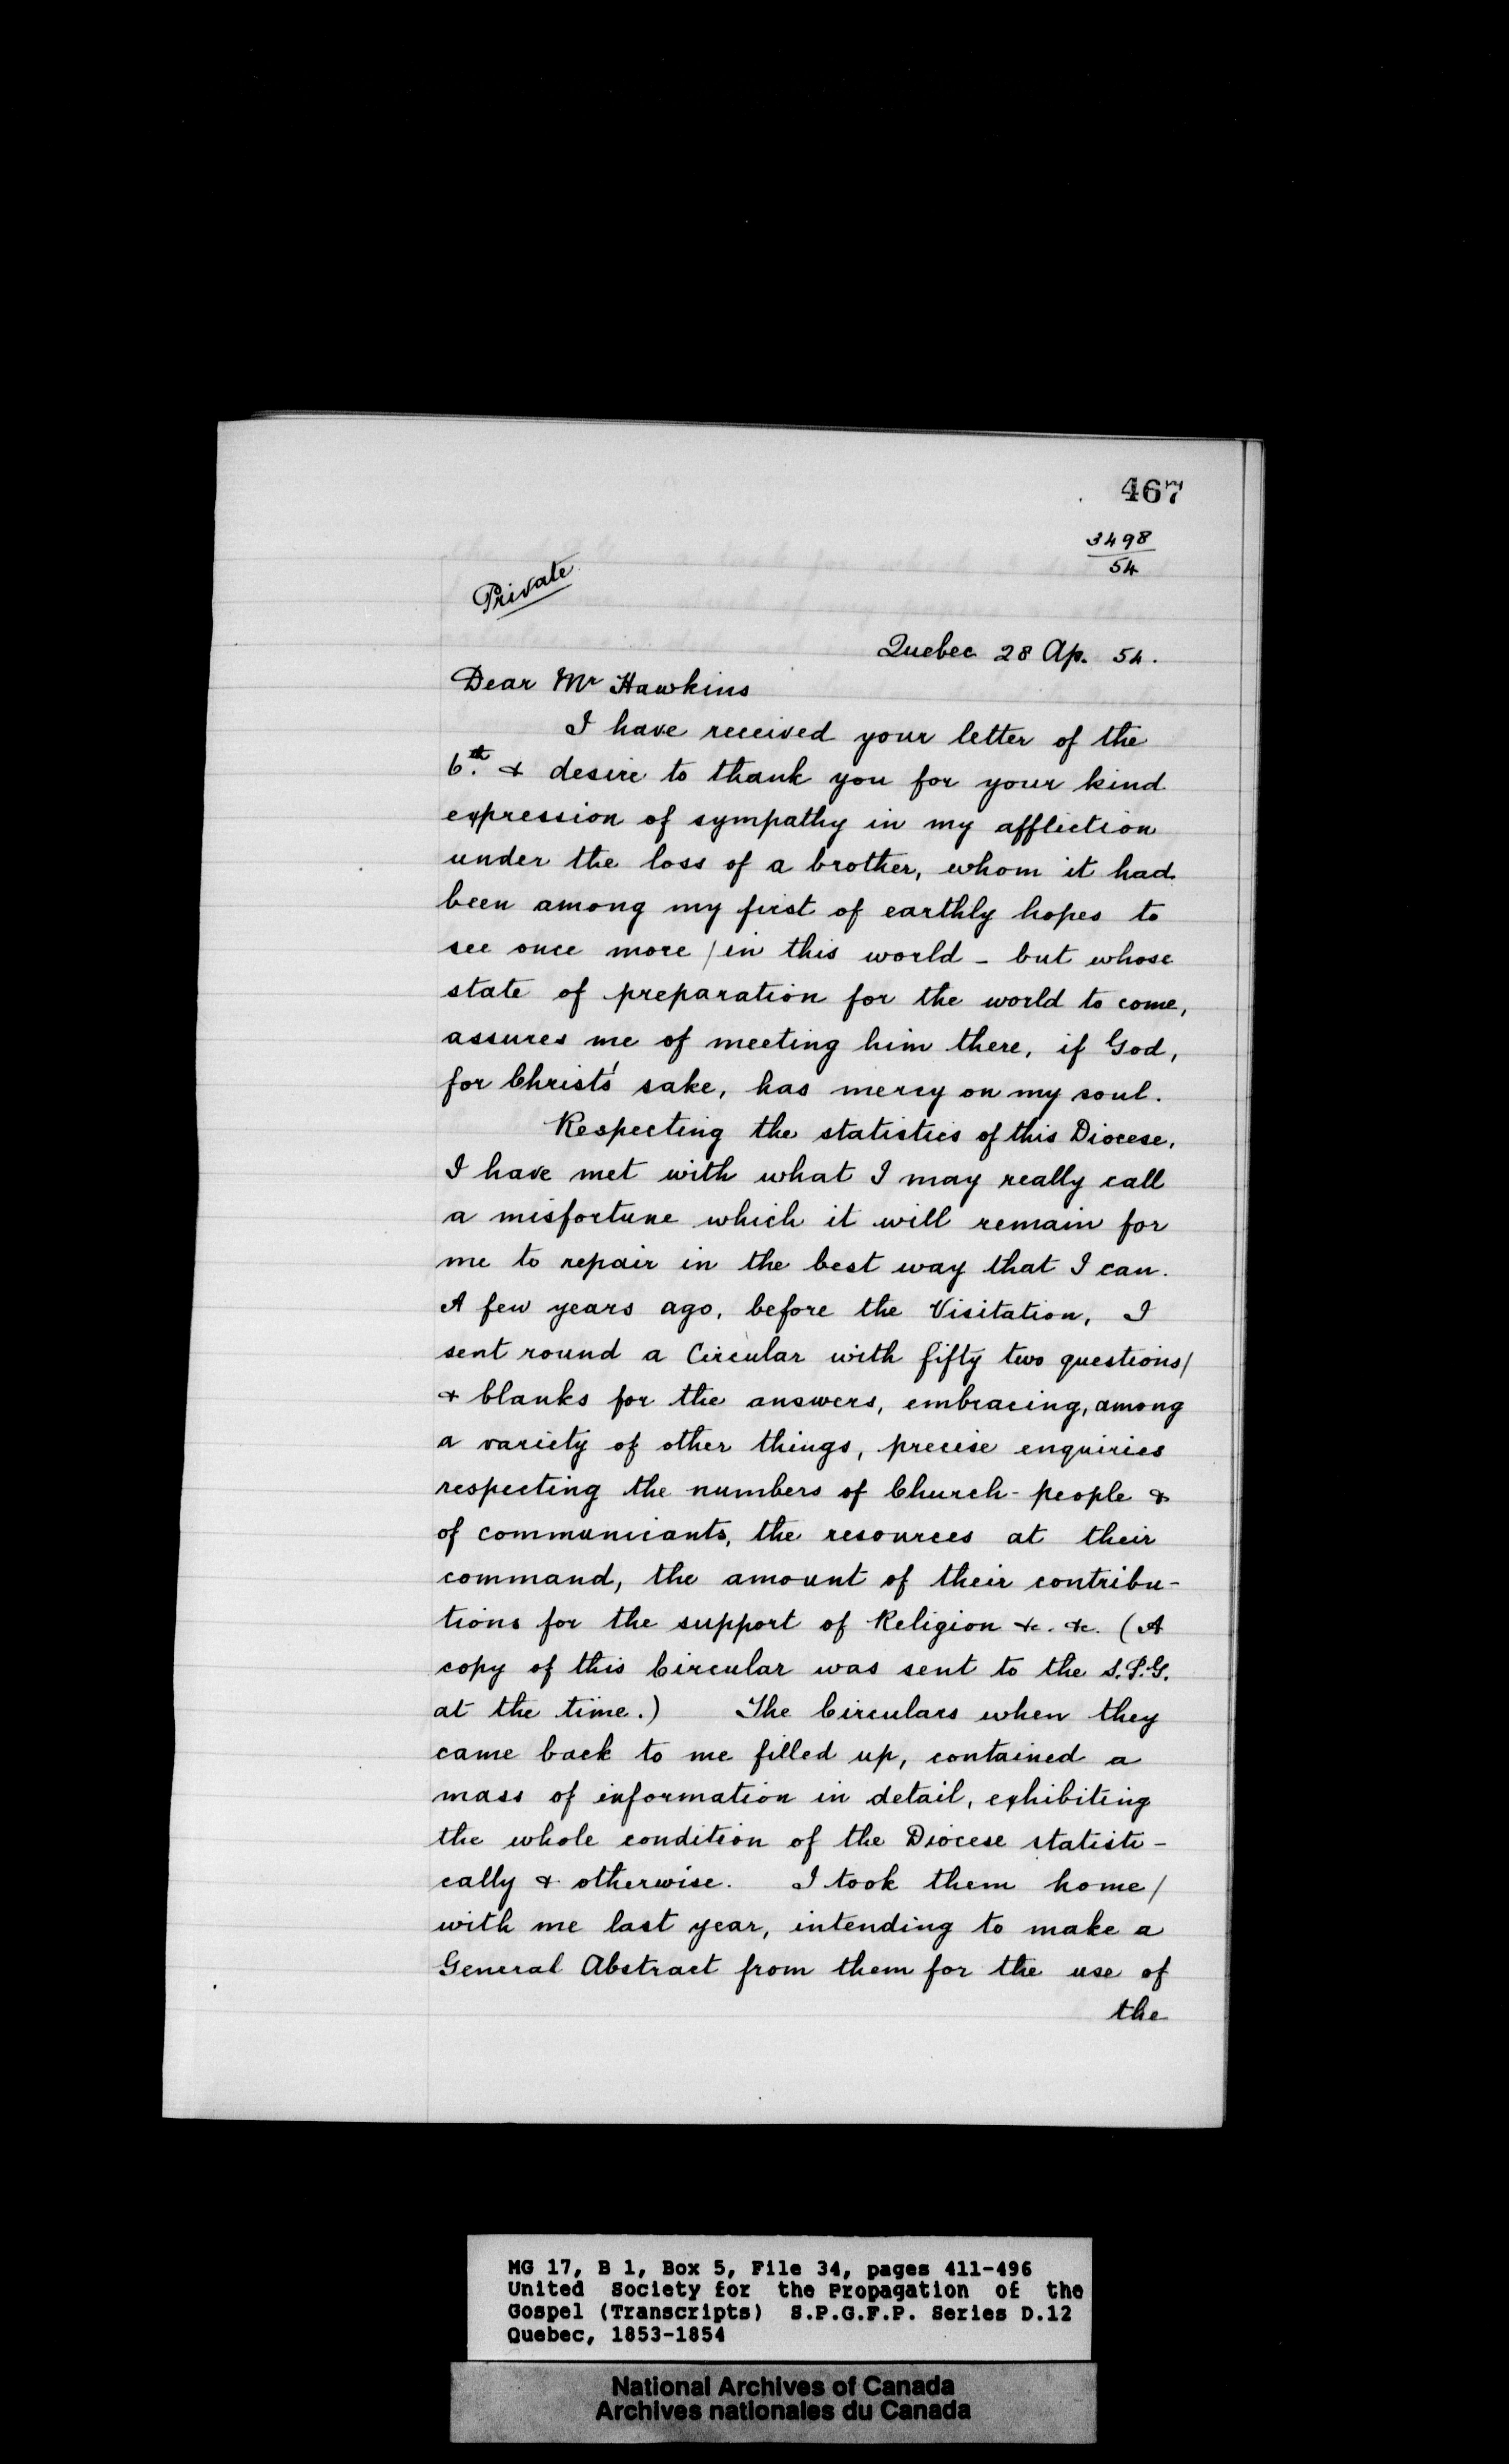 467
3498
54
Private
Quebec 28 Ap. 54.
Dear Mr Hawkins
I have received your letter of the
6.th & desire to thank you for your kind
expression of sympathy in my affliction
under the loss of a brother, whom it had
been among my first of earthly hopes to
see once more / in this world - but whose
state of preparation for the world to come,
assures me of meeting him there, if God,
for Christ's sake, has mercy on my soul.
Respecting the statistics of this Diocese,
I have met with what I may really call
a misfortune which it will remain for
me to repair in the best way that I can.
A few years ago, before the Visitation, I
sent round a Circular with fifty two questions/
& blanks for the answers, embracing, among
a variety of other things, precise enquiries
respecting the numbers of Church-people &
of communicants, the resources at their
command, the amount of their contribu-
tions for the support of Religion &c. &c. (A
copy of this Circular was sent to the S.P.G.
at the time.) The Circulars when they
came back to me filled up, contained a
mass of information in detail, exhibiting
the whole condition of the Diocese statisti-
cally & otherwise. I took them home/
with me last year, intending to make a
General Abstract from them for the use of
the
MG 17, B 1, Box 5, File 34, pages 411-496
United Society for the Propagation of the
Gospel (Transcripts) S.P.G.F.P. Series D.12
Quebec, 1853-1854
National Archives of Canada
Archives nationales du Canada